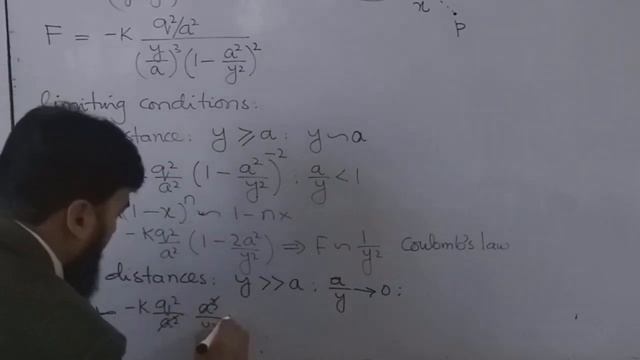 x
p
F = -K \frac{q²/a²}{(\frac{y}{a})³ (1 - \frac{a²}{y²})²}
limiting conditions:
distance: y ⩾ a : y ∽ a
\frac{q²}{a²} (1 - \frac{a²}{y²})^{-2} : \frac{a}{y} < 1
(1-x)^n ∽ 1-nx
-\frac{Kq²}{a²} (1 - \frac{2a²}{y²}) ⇒ F ∽ \frac{1}{y²} Coulomb's law
distances: y >> a : \frac{a}{y} → 0 :
-K \frac{q²}{a²} a³